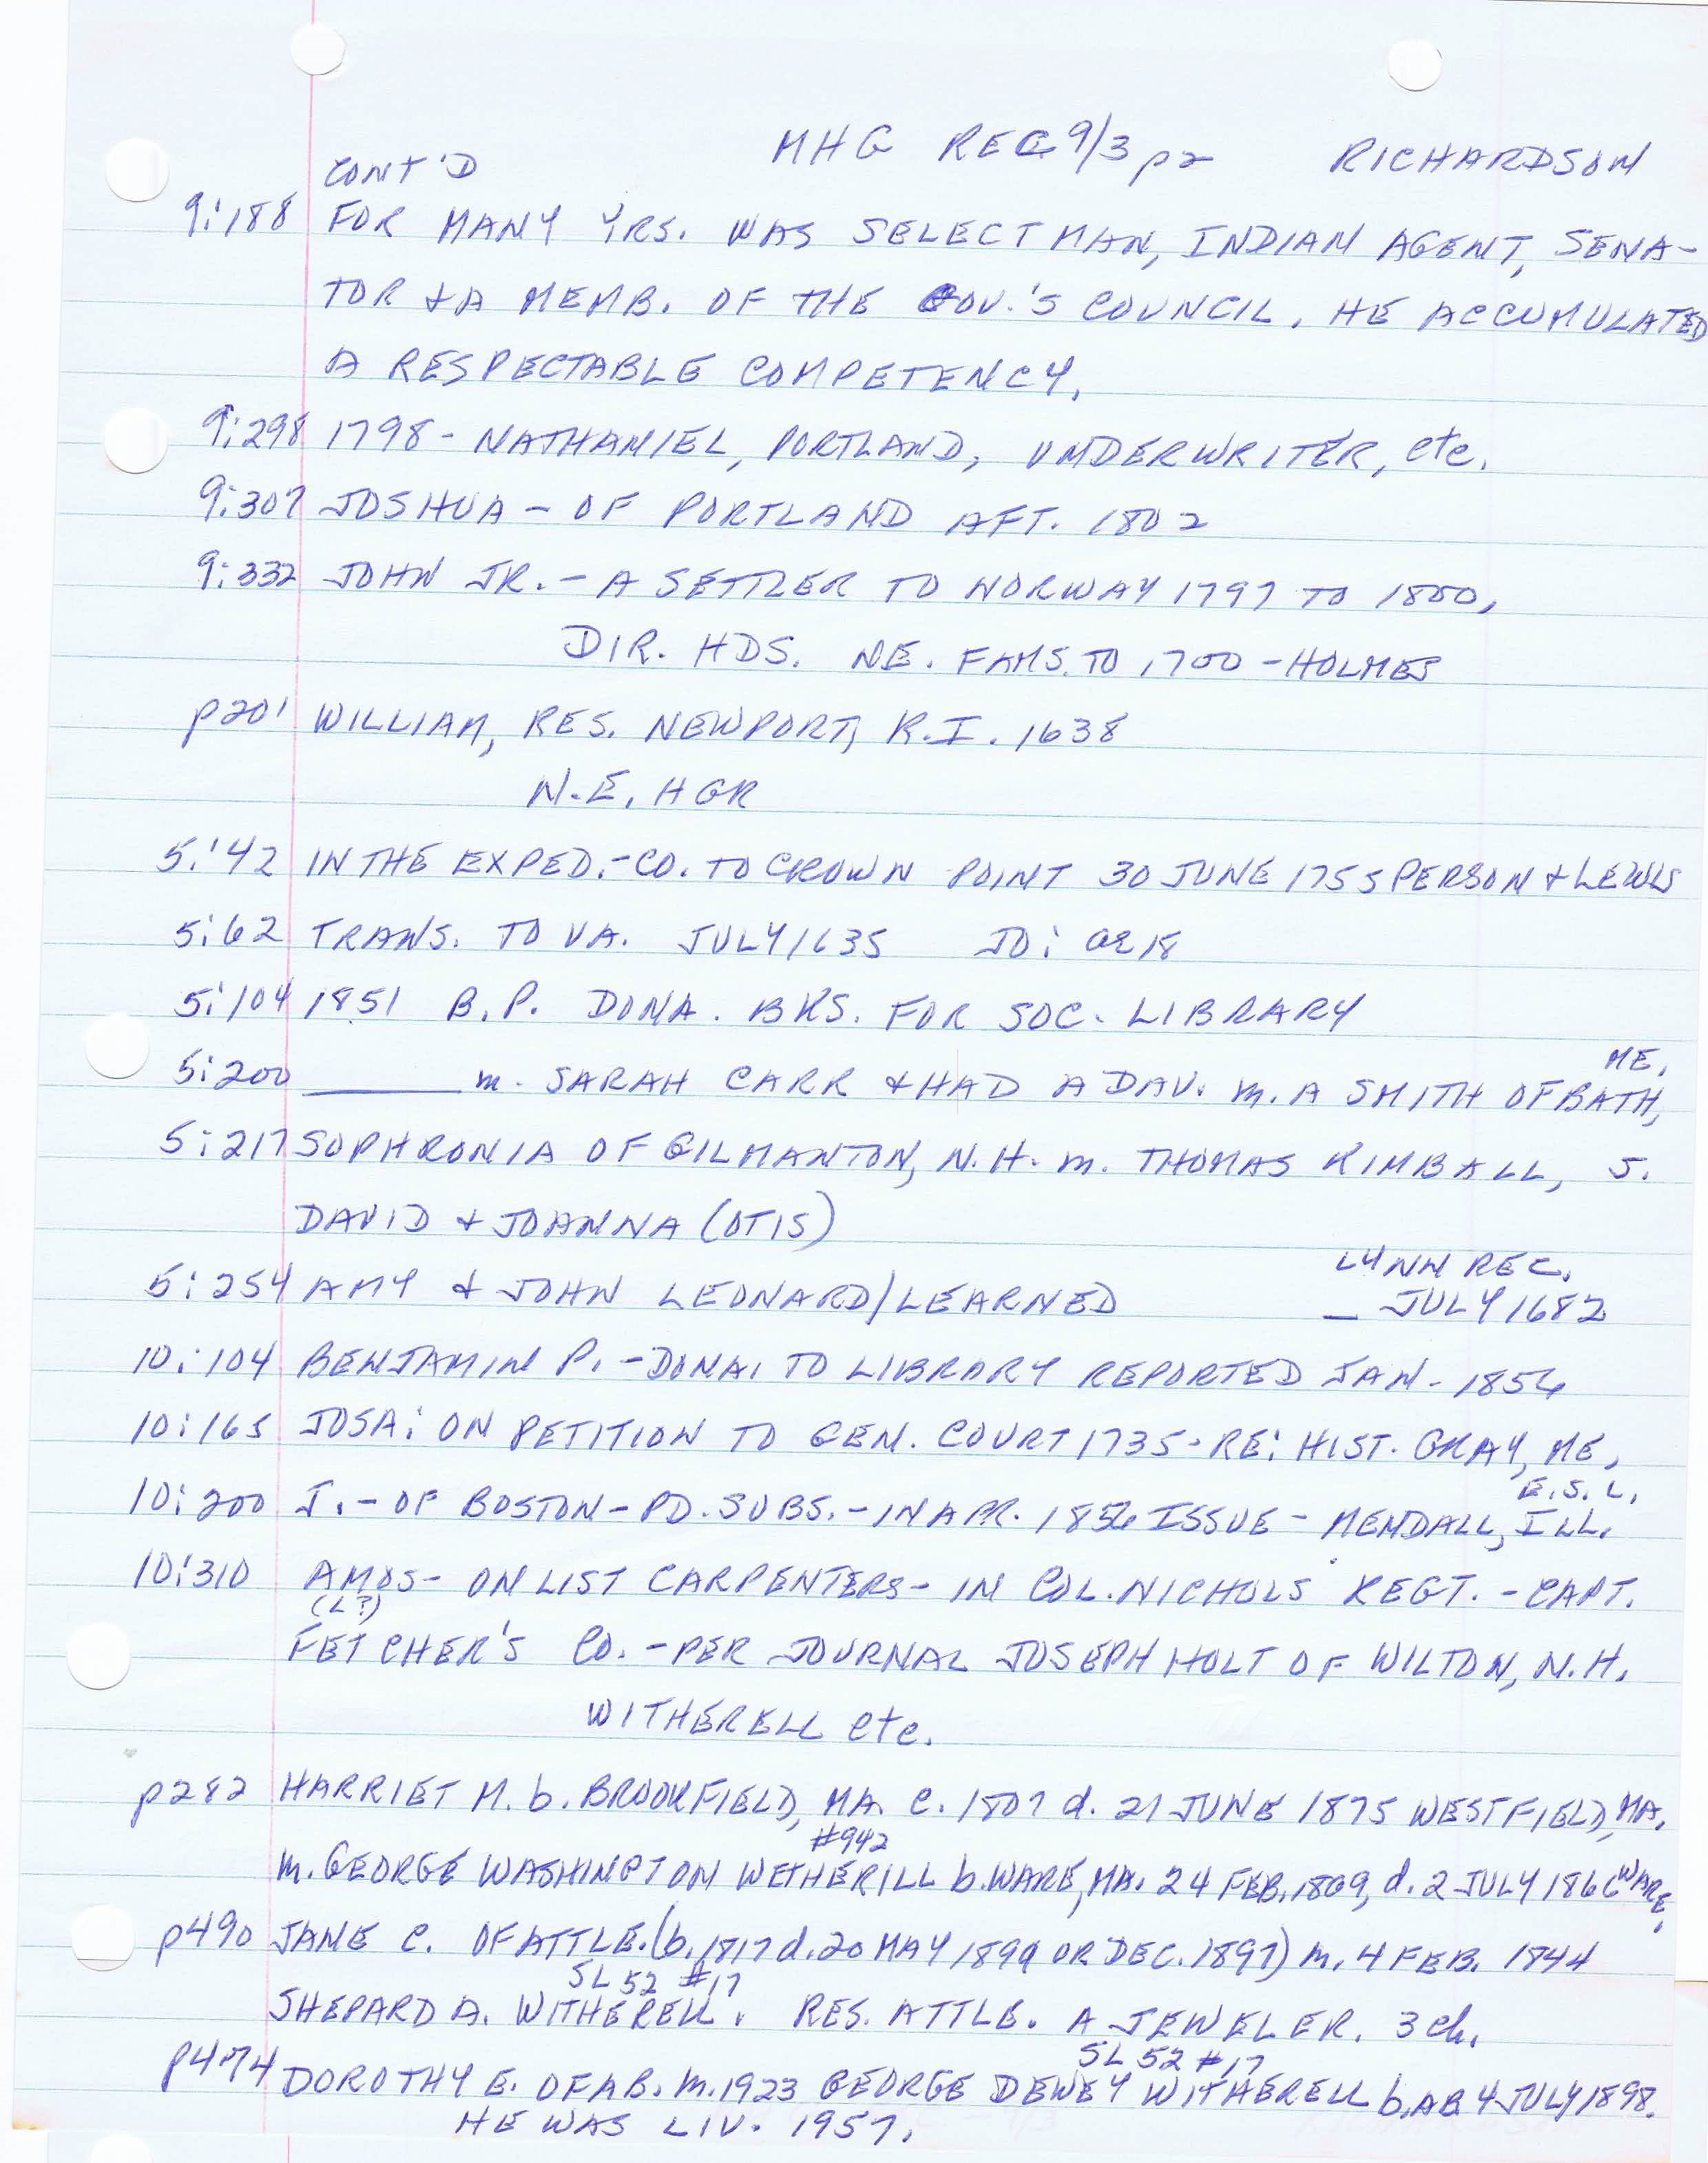 MHG REC 9/3 p2 RICHARDSON
CONT'D
9:188 FOR MANY YRS. WAS SELECTMAN, INDIAN AGENT, SENA-
TOR & A MEMB. OF THE GOV.'S COUNCIL. HE ACCUMULATED
A RESPECTABLE COMPETENCY.
9:298 1798 - NATHANIEL, PORTLAND, UNDERWRITER, etc.
9:307 JOSHUA - OF PORTLAND AFT. 1802
9:332 JOHN JR. - A SETTLER TO NORWAY 1797 TO 1800,
DIR. HDS. NE. FAMS. TO 1700 - HOLMES
p201 WILLIAM, RES. NEWPORT, R.I. 1638
N.E. HGR
5:42 IN THE EXPED. - CO. TO CROWN POINT 30 JUNE 1755 PERSON & LEWIS
5:62 TRANS. TO VA. JULY 1635 JO: ae 18
5:104 1851 B.P. DONA. BKS. FOR SOC. LIBRARY
ME.
5:200 ______ m. SARAH CARR & HAD A DAU. m. A SMITH OF BATH,
5:217 SOPHRONIA OF GILMANTON, N.H. m. THOMAS KIMBALL, S.
DAVID & JOANNA (OTIS)
LYNN REC.
5:254 AMY & JOHN LEONARD/LEARNED - JULY 1682
10:104 BENJAMIN P. - DONA. TO LIBRARY REPORTED JAN. 1856
10:165 JOSA: ON PETITION TO GEN. COURT 1735 - RE: HIST. GRAY, ME.
E.S.L.
10:200 J. - OF BOSTON - PD. SUBS. - IN APR. 1856 ISSUE - MENDALL, ILL.
10:310 AMOS - ON LIST CARPENTERS - IN COL. NICHOLS REGT. - CAPT.
(L?)
FETCHER'S CO. - PER JOURNAL JOSEPH HOLT OF WILTON, N.H.
WITHERELL etc.
p282 HARRIET M. b. BROOKFIELD, MA. c. 1807 d. 21 JUNE 1875 WESTFIELD, MA.
#942
m. GEORGE WASHINGTON WETHERILL b. WARE, MA. 24 FEB. 1809, d. 2 JULY 1866 WARE.
p490 JANE C. OF ATTLE. (b. 1817 d. 20 MAY 1899 OR DEC. 1897) m. 4 FEB. 1844
SL 52 #17
SHEPARD A. WITHERELL. RES. ATTLB. A JEWELER. 3 ch.
SL 52 #17
p474 DOROTHY E. OF AB. m. 1923 GEORGE DEWEY WITHERELL b. AB 4 JULY 1898.
HE WAS LIV. 1957.